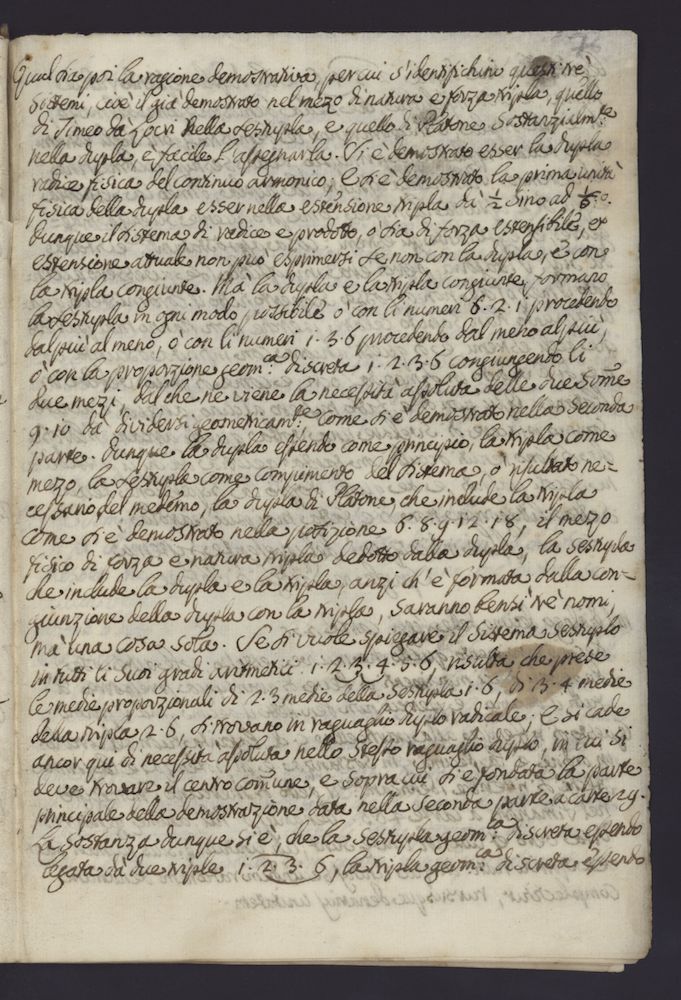 Qual sia poi la ragione demostrativa, per cui s'identifichino questi trè
sistemi, cioè il già demostrato nel mezo di natura e forza tripla, quello
di Timeo da Locri nella sestupla, e quello di Platone sostanzialm.te
nella dupla, è facile l'assegnarla. Si è demostrato esser la dupla
radice fisica del continuo armonico; e si è demostrato la prima unità
fisica della dupla esser nella estensione tripla di 1/2 sino ad 1/6.
Dunque il sistema di radice e prodotto, o sia di forza estensibile, et
estensione attuale non può esprimersi se non con la dupla, e con
la tripla congiunte. Mà la dupla e la tripla congiunte, formano
la sestupla in ogni modo possibile ò con li numeri 6. 2. 1 procedendo
dal più al meno, ò con li numeri 1. 3. 6 procedendo dal meno al più,
ò con la proporzione geom.ca discreta 1. 2. 3. 6 congiungendo li
due mezi, dal che ne viene la necessità assoluta delle due some
9. 10 da dividersi geometricam.te, come si è demostrato nella seconda
parte. Dunque la dupla essendo come principio, la tripla come
mezo, la sestupla come compimento del sistema, o risultato ne=
cessario del medemo, la dupla di Platone, che include la tripla
come si è demostrato nella posizione 6. 8. 9. 12. 18, il mezo
fisico di forza e natura tripla dedotto dalla dupla, la sestupla
che include la dupla e la tripla, anzi ch'è formata dalla con=
giunzione della dupla con la tripla, saranno bensì trè nomi,
mà una cosa sola. Se si vuole spiegare il sistema sestuplo
in tutti li suoi gradi aritmetici 1. 2. 3. 4. 5. 6, risulta che prese
le medie proporzionali di 2. 3 medie della sestupla 1. 6, di 3. 4 medie
della tripla 2. 6, si trovano in raguaglio duplo radicale; e si cade
ancor qui di necessità assoluta nello stesso raguaglio duplo, in cui si
deve trovare il centro comune, e sopra cui si è fondata la parte
principale della demostrazione data nella seconda parte à carte 29.
La sostanza dunque si è, che la sestupla geom.ca discreta essendo
legata da due triple 1. 2. 3. 6, la tripla geom.ca discreta essendo